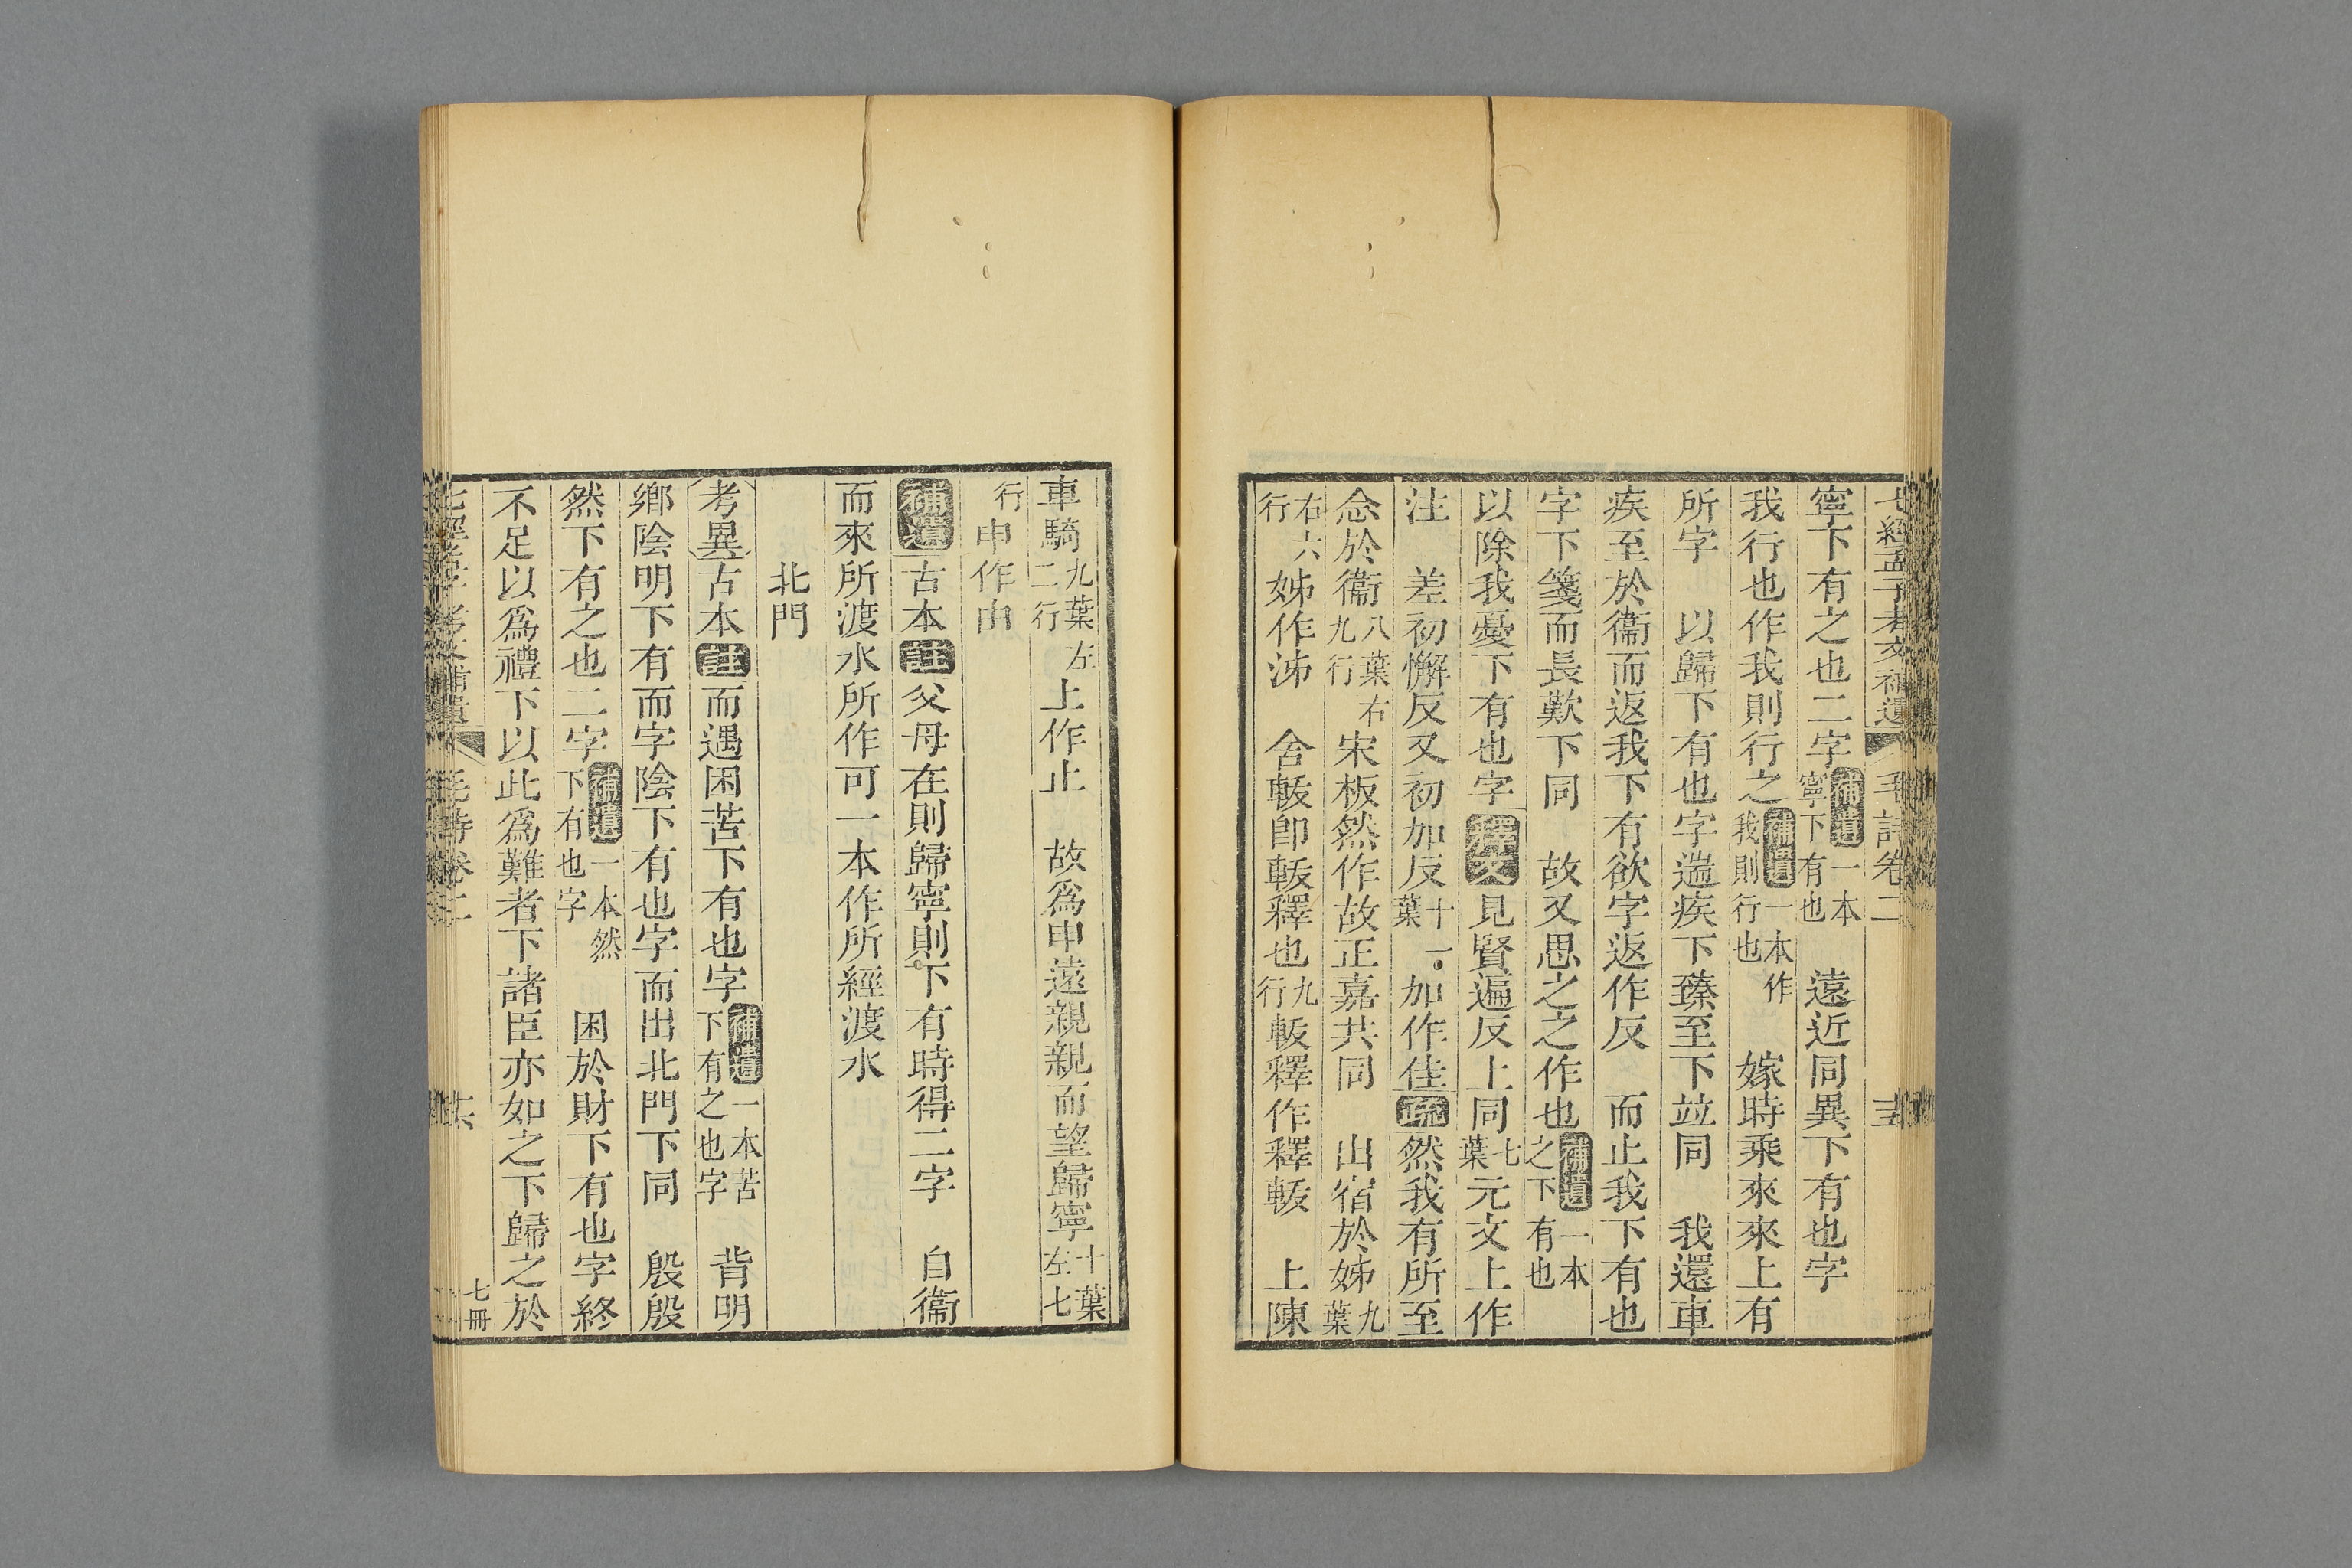 七經孟子考文補遺 毛詩卷二 十五
寧下有之也二字補遺一本寧下有也 遠近同異下有也字
我行也作我則行之補遺一本作我則行也 嫁時乘來來上有
所字 以歸下有也字遄疾下臻至下竝同 我還車
疾至於衞而返我下有欲字返作反 而止我下有也
字下箋而長歎下同 故又思之之作也補遺一本之下有也
以除我憂下有也字釋文見賢遍反上同七葉元文上作
注 差初懈反又初加反十一葉加作佳疏然我有所至
念於衞八葉右九行宋板然作故正嘉共同 出宿於姊九葉
右六行姊作泲 舍軷卽軷釋也九行軷釋作釋軷 上陳
車騎九葉左二行上作止 故爲申遠親親而望歸寧十葉左七
行申作由
補遺古本註父母在則歸寧則下有時得二字 自衞
而來所渡水所作可一本作所經渡水
北門
考異古本註而遇困苦下有也字補遺一本苦下有之也字 背明
鄉陰明下有而字陰下有也字而出北門下同 殷殷
然下有之也二字補遺一本然下有也字 困於財下有也字終
不足以爲禮下以此爲難者下諸臣亦如之下歸之於
毛詩卷二 七冊